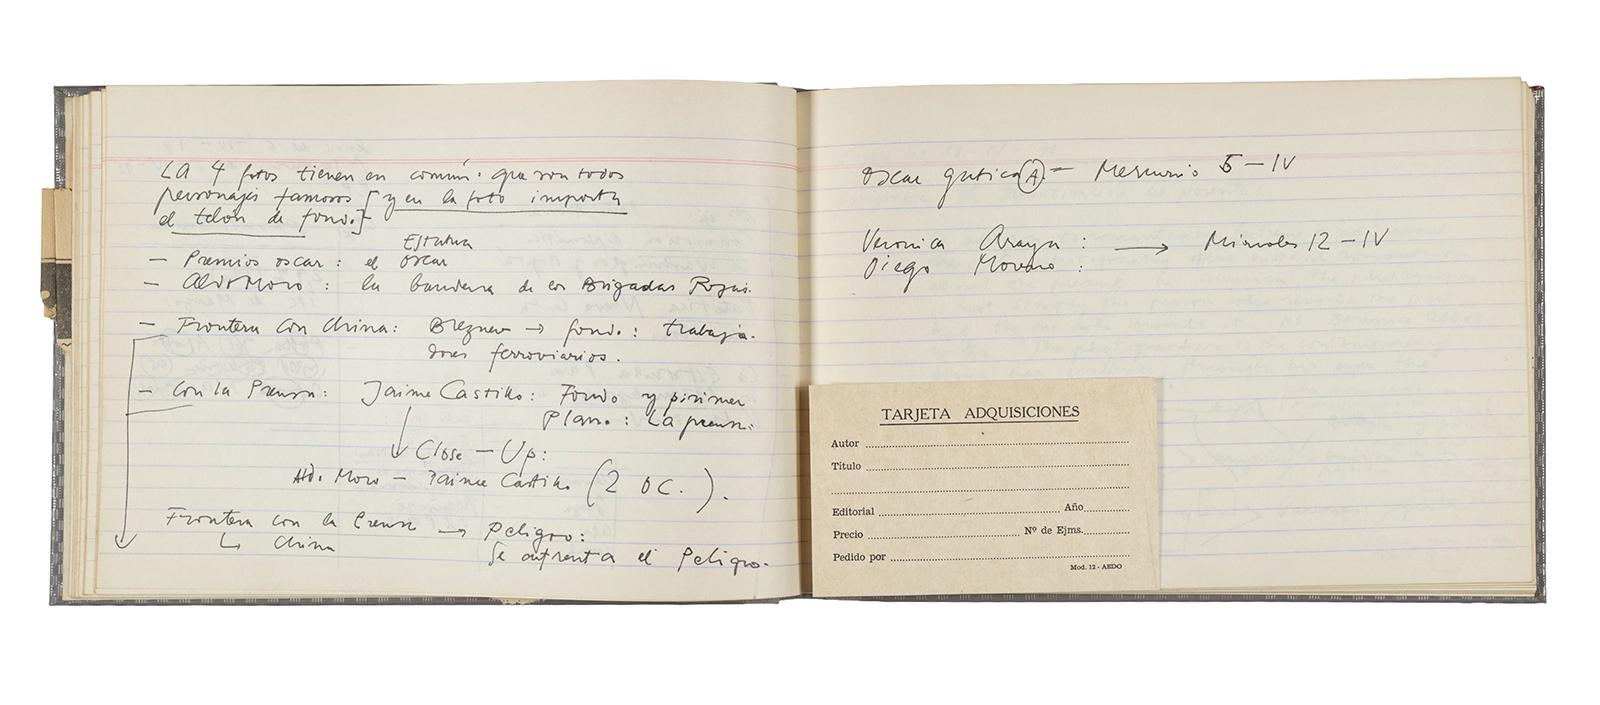 LA 4 fotos tienen en común: que son todos
personajes famosos [y en la foto importa
el telón de fondo.]
Estatua
— Premios oscar: el oscar
— Aldo Moro: la bandera de las Brigadas Rojas.
— Frontera con China: Breznev → fondo: trabaja-
dores ferroviarios.
— Con la Prensa: Jaime Castillo: Fondo y primer
Plano: La prensa:
↓ Close-Up:
Ald. Moro — Jaime Castillo (2 DC.).
Frontera con la Prensa → Peligro:
↳ China
Se enfrenta el Peligro.
Oscar (A) — Mercurio 5-IV
Veronica Araya: → Miercoles 12-IV
Diego Moreno:
TARJETA ADQUISICIONES
Autor
Título
Editorial Año
Precio Nº de Ejms.
Pedido por
Mod. 12 - AEDO